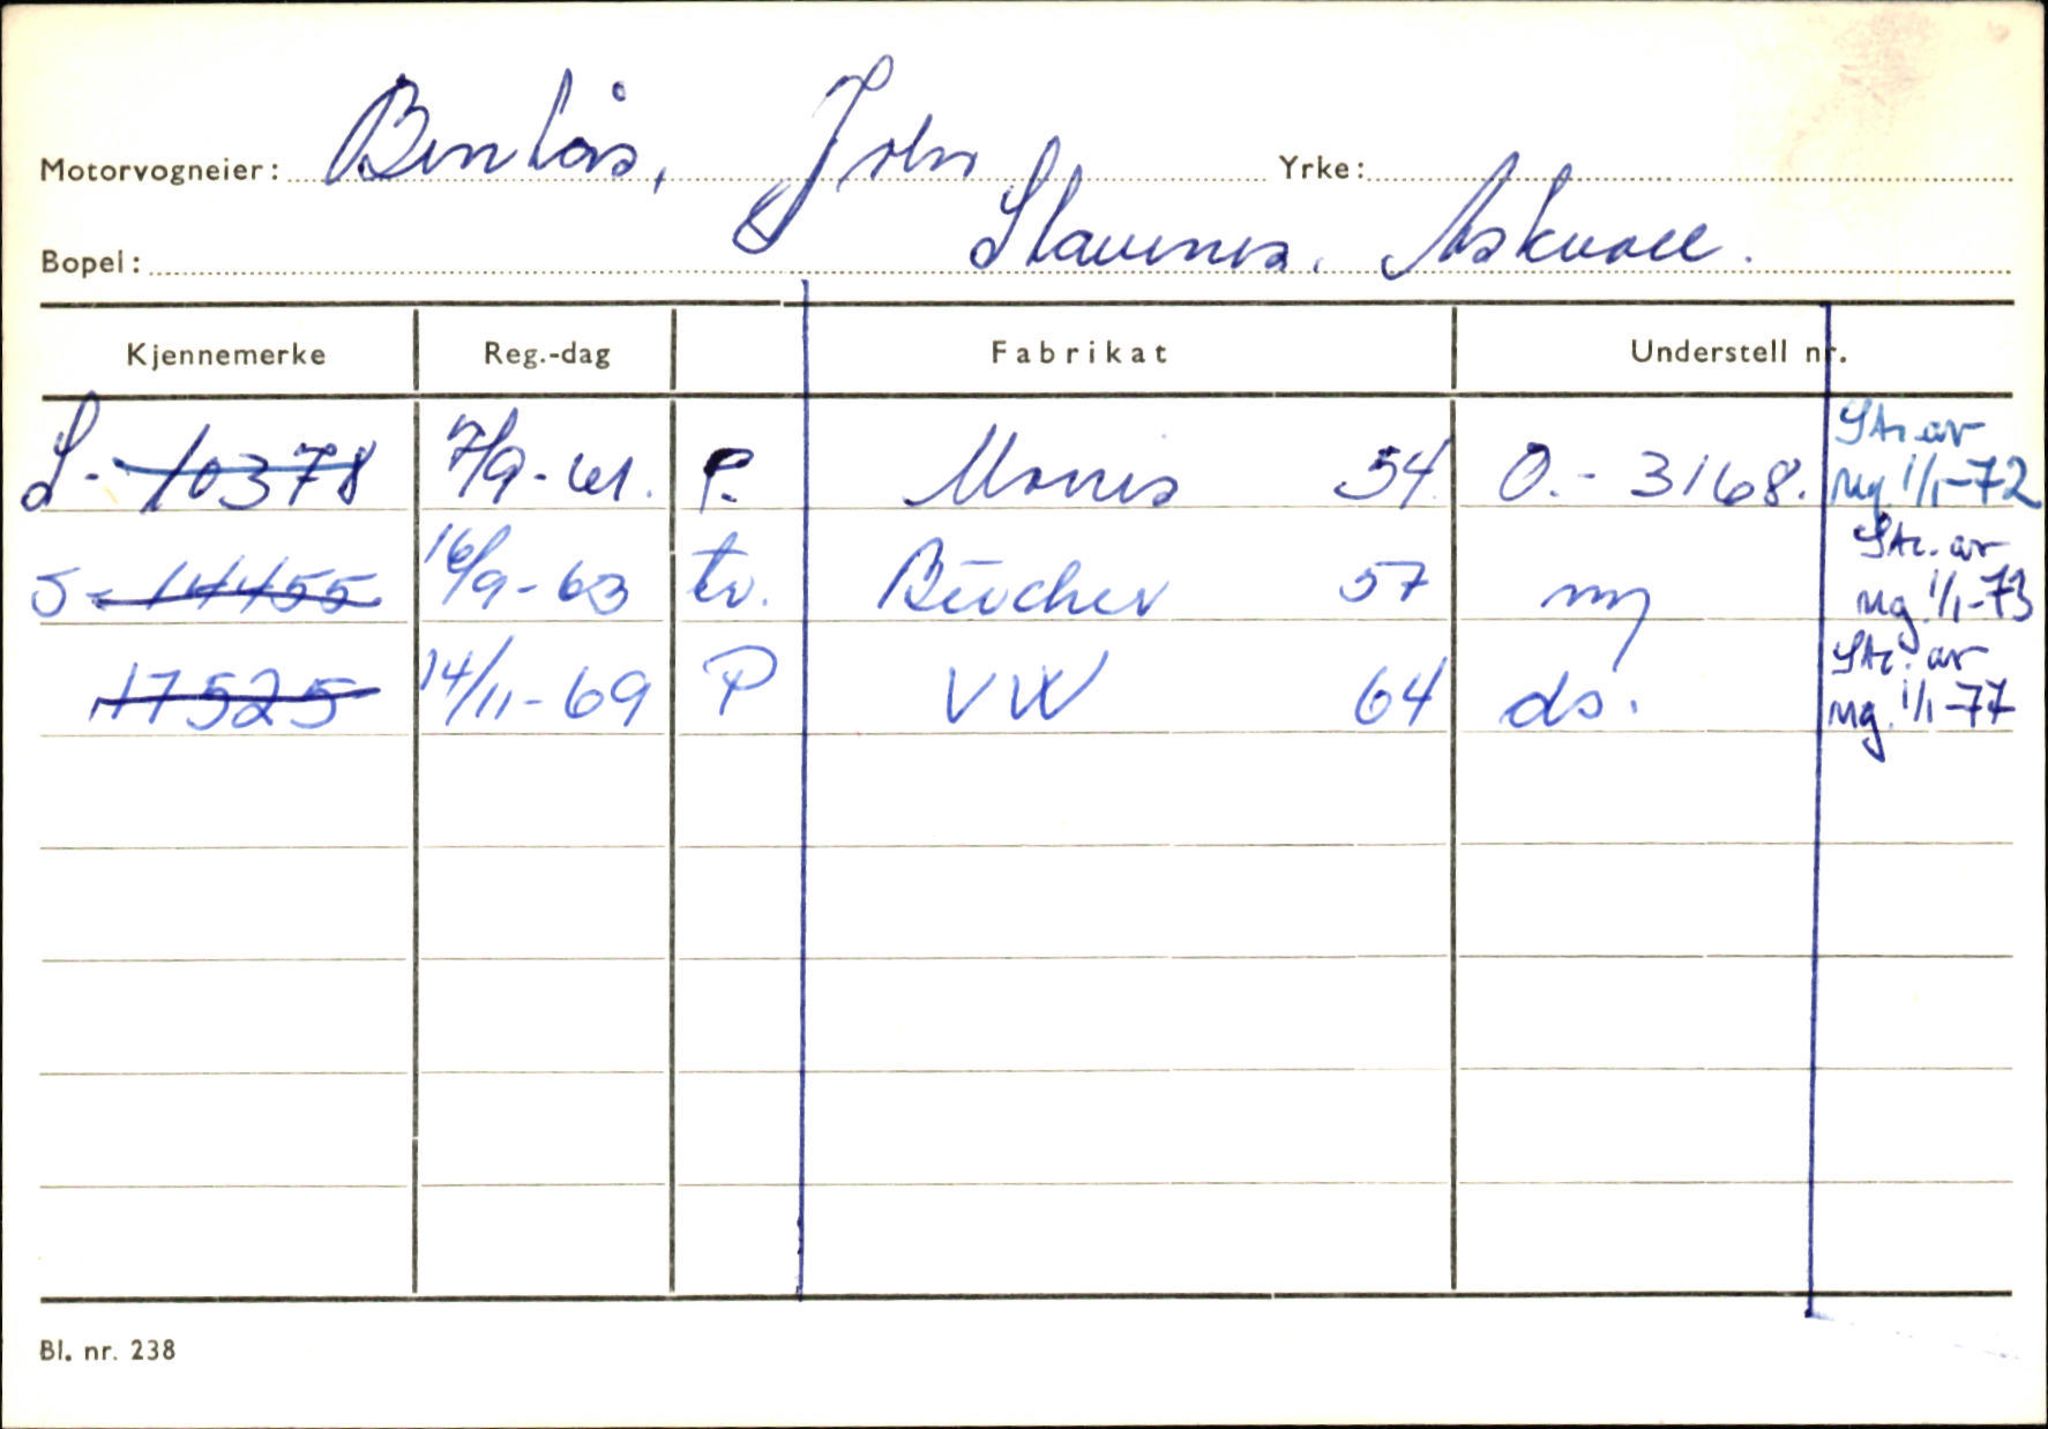 Motorvogneier: Benlås, John Yrke:
Bopel: Stavenes. Askvoll.
Kjennemerke Reg.-dag Fabrikat Understell nr.
S-10378 7/9-61. P. Morris 54 O.-3168. Str. av reg. 1/1-72
S-14455 16/9-63 tv. Bücher 57 ny Str. av reg. 1/1-73
17525 14/11-69 P VW 64 ds. Str. av reg. 1/1-77
Bl. nr. 238